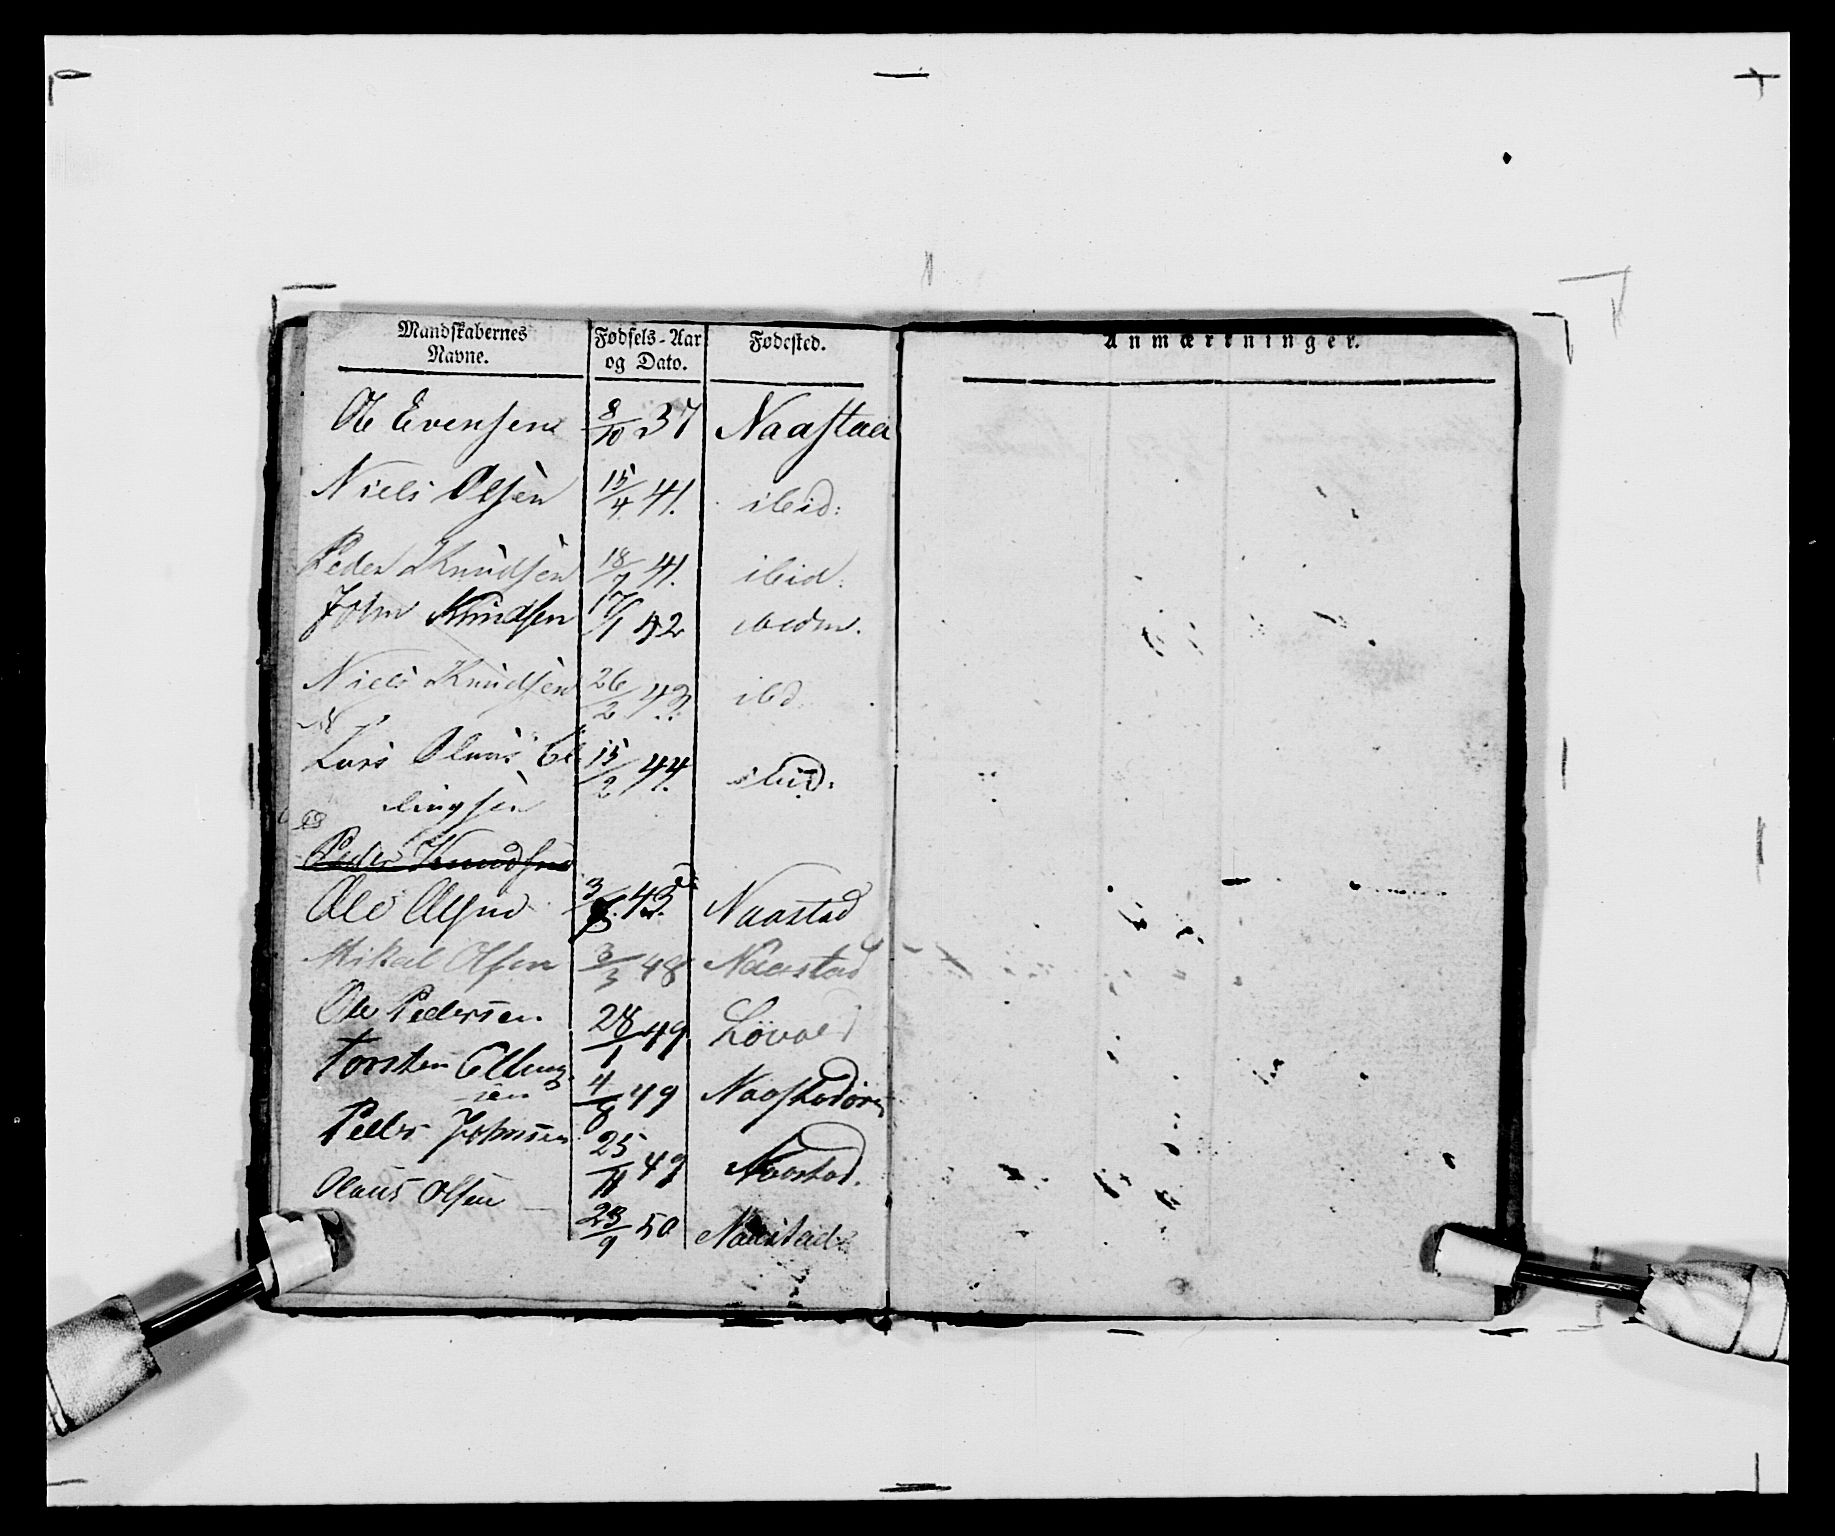 Mandskabernes Navne. Fødsels-Aar og Dato. Fødested.
Anmærkninger.
Ole Evensen 8/10 37 Naastad
Niels Olsen 15/4 41. ibid:
Peder Knudsen 18/7 41. ibid:
John Knudsen 17/1 42 ibidm.
Niels Knudsen 26/2 43 ibd
Lars Olaus El- 15/2 44. ibid:
lingsen
Peder Knudsen
Ole Olsen 3/8 45 Naastad
Mikal Olsen 3/3 48 Naastad
Ole Pedersen 28/1 49 Lövold
Torsten Elling 4/6 49
sen
Peder Johnsen 25/11 49 Naastad.
Olaus Olsen 23/9 50 Naastad